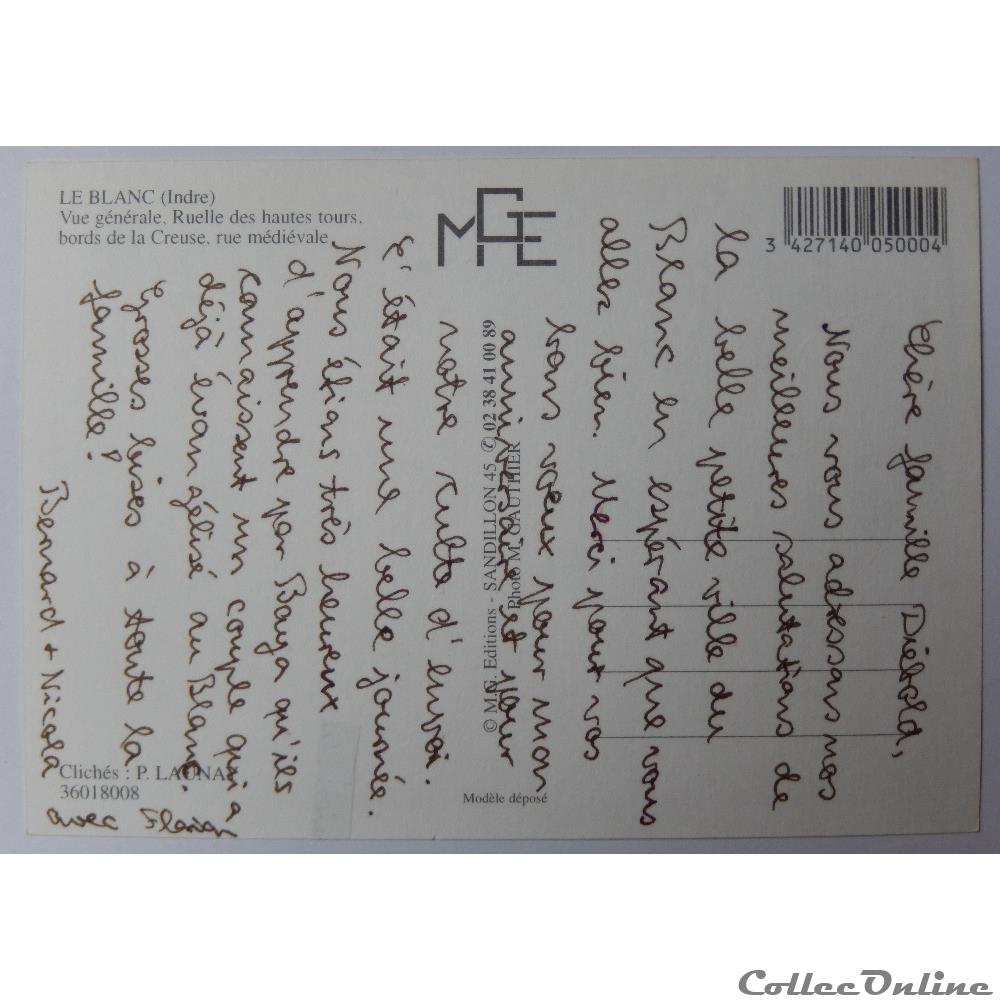 LE BLANC (Indre)
Vue générale, Ruelle des hautes tours,
bords de la Creuse, rue médiévale
MGE
3 427140 050004
© M.G. Editions - SANDILLON 45 ✆ 02 38 41 00 89
Photo M. GAUTHIER
Modèle déposé
Clichés : P. LAUNAY
36018008
Chère famille Diebold,
Nous vous adressons nos
meilleures salutations de
la belle petite ville du
Blanc en espérant que vous
allez bien. Merci pour vos
bons voeux pour mon
anniversaire et pour
notre culte d'envoi.
C'était une belle journée.
Nous étions très heureux
d'apprendre par Baya qu'ils
connaissent un couple qui a
déjà évangélisé au Blanc.
Grosses bises à toute la
famille !
Bernard + Nicola
avec Florian
CollecOnline